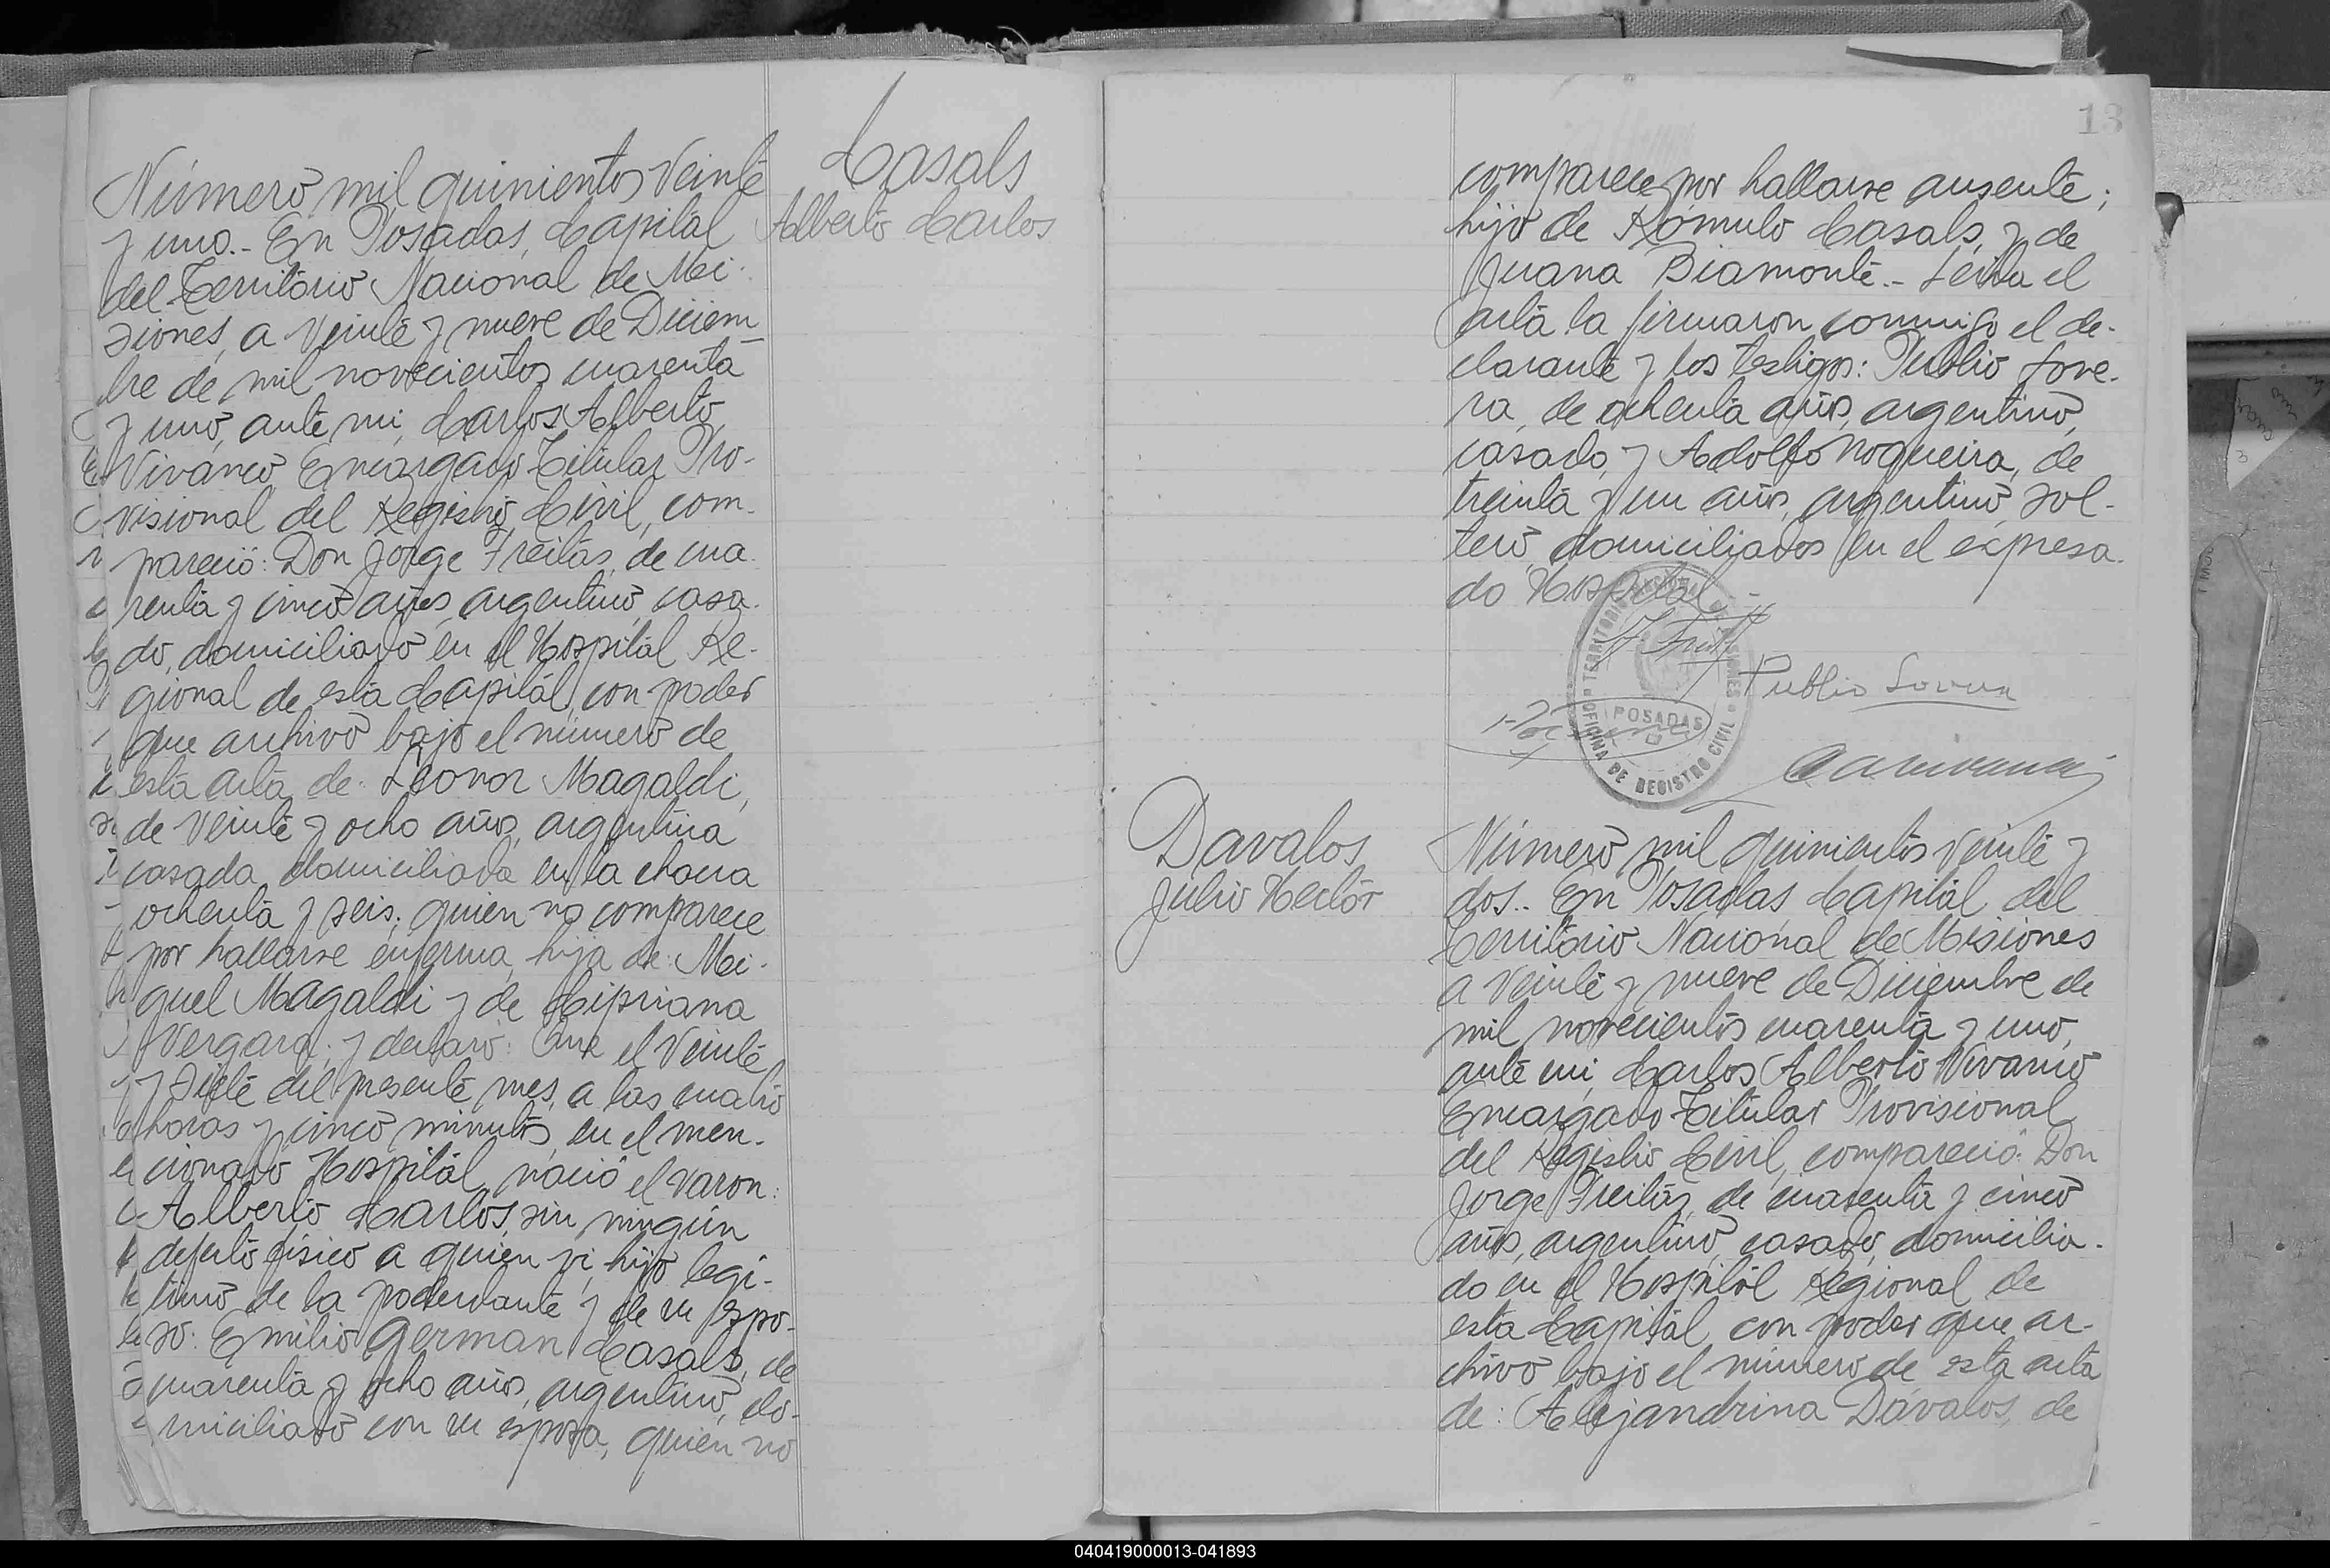 Casals
Alberto Carlos
Número mil quinientos Veinte
y uno.- En Posadas, Capital
del Territorio Nacional de Mi-
siones, a Veinte y nueve de Diciem-
bre de mil novecientos cuarenta
y uno, ante mi, Carlos Alberto
Vivanco, Encargado Titular Pro-
visional del Registro Civil, com-
pareció: Don Jorge Freitas, de cua-
renta y cinco años, argentino, casa-
do, domiciliado en el Hospital Re-
gional de esta Capital, con poder
que archivo bajo el número de
esta acta, de: Leonor Magaldi,
de Veinte y ocho años, argentina
casada, domiciliada en la chacra
ochenta y seis; quien no comparece
por hallarse enferma, hija de: Mi-
guel Magaldi y de Cipriana
Vergara; y declaró: Que el Veinte
y Siete del presente mes, a las cuatro
horas y cinco minutos, en el men-
cionado Hospital, nació el varon:
Alberto Carlos, sin ningún
defecto físico a quien vi, hijo legi-
timo de la poderdante y de su espo-
so: Emilio German Casals, de
cuarenta y ocho años, argentino, do-
miciliado con su esposa, quien no
13
comparece por hallarse ausente;
hijo de Rómulo Casals, y de
Juana Biamonte.- Leída el
acta la firmaron conmigo el de-
clarante y los testigos: Publio Love-
ra, de ochenta años, argentino,
casado, y Adolfo Nogueira, de
treinta y un años, argentino, sol-
tero, domiciliados en el expresa-
do Hospital.-
TERRITORIO MISIONES
POSADAS
OFICINA DE REGISTRO CIVIL
Publio Lovera
Davalos
Julio Hector
Número mil quinientos Veinte y
dos.- En Posadas, Capital del
Territorio Nacional de Misiones
a Veinte y nueve de Diciembre de
mil novecientos cuarenta y uno,
ante mi, Carlos Alberto Vivanco
Encargado Titular Provisional
del Registro Civil, compareció: Don
Jorge Freitas, de cuarenta y cinco
años, argentino, casado, domicilia-
do en el Hospital Regional de
esta Capital, con poder que ar-
chivo bajo el número de esta acta
de: Alejandrina Dávalos, de
040419000013-041893